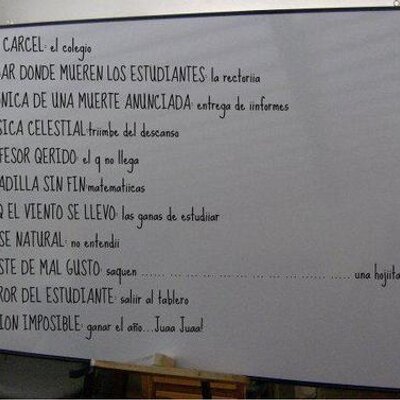 CARCEL: el colegio
AR DONDE MUEREN LOS ESTUDIANTES: la rectoriia
NICA DE UNA MUERTE ANUNCIADA: entrega de iinformes
SICA CELESTIAL: triimbe del descanso
FESOR QERIDO: el q no llega
ADILLA SIN FIN: matematiicas
Q EL VIENTO SE LLEVO: las ganas de estudiiar
SE NATURAL: no entendii
STE DE MAL GUSTO: saquen ... ... ... ... ... ... ... ... ... ... ... una hojiita
ROR DEL ESTUDIANTE: saliir al tablero
ION IMPOSIBLE: ganar el año...Juaa Juaa!